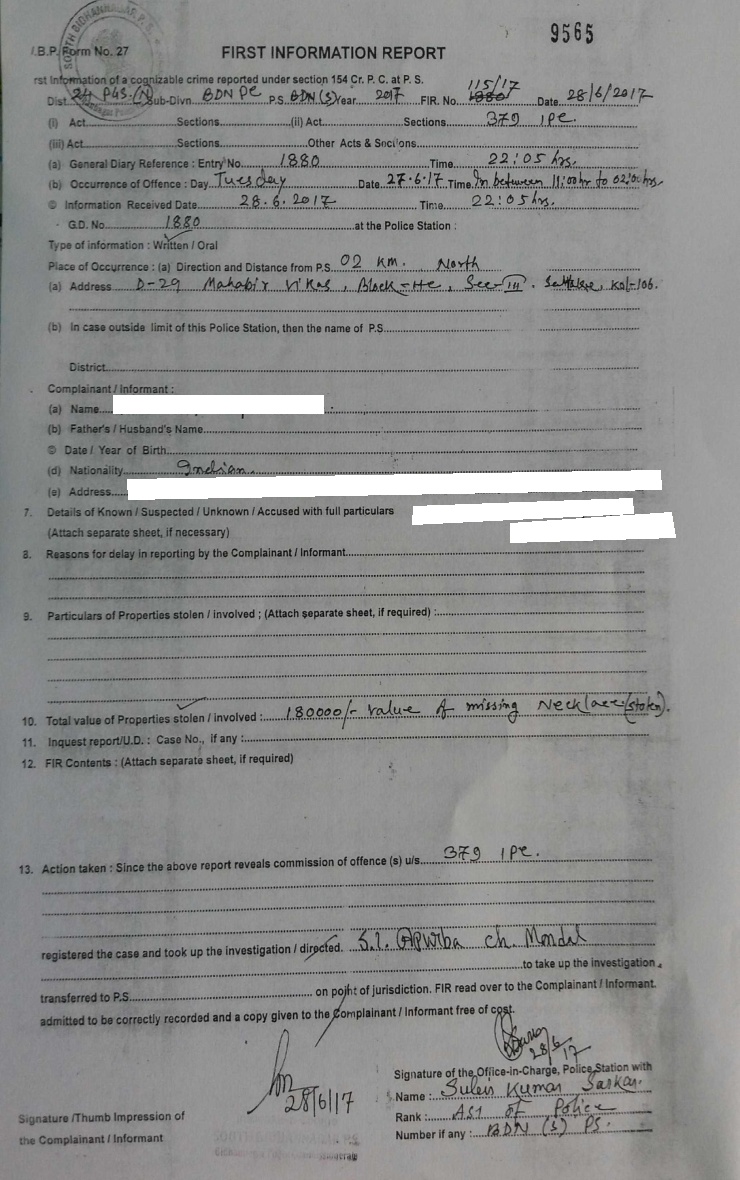 9565
SOUTH BIDHANNAGAR P.S.
I.B.P. Form No. 27
FIRST INFORMATION REPORT
rst Information of a cognizable crime reported under section 154 Cr. P. C. at P. S.
Dist. 24 PGS.(N) Sub-Divn. BDN PC P.S. BDN (S) Year 2017 FIR. No. 115/17 1880 Date 28/6/2017
(i) Act Sections (ii) Act Sections 379 IPC.
(iii) Act Sections Other Acts & Sections
(a) General Diary Reference : Entry No. 1880 Time 22:05 hrs.
(b) Occurrence of Offence : Day Tuesday Date 27.6.17 Time In between 11:00hr to 02:00 hrs.
© Information Received Date 28.6.2017 Time 22:05 hrs.
G.D. No. 1880 at the Police Station :
Type of information : Written / Oral
Place of Occurrence : (a) Direction and Distance from P.S. 02 KM. North
(a) Address D-29 Mahabir Vikas, Block-HC, Sec-III. Saltlake, Kol-106.
(b) In case outside limit of this Police Station, then the name of P.S.
District
Complainant / Informant :
(a) Name
(b) Father's / Husband's Name
© Date / Year of Birth
(d) Nationality Indian
(e) Address
7. Details of Known / Suspected / Unknown / Accused with full particulars
(Attach separate sheet, if necessary)
8. Reasons for delay in reporting by the Complainant / Informant
9. Particulars of Properties stolen / involved ; (Attach separate sheet, if required) :
10. Total value of Properties stolen / involved : 180000/- value of missing Necklace (stolen).
11. Inquest report/U.D. : Case No., if any :
12. FIR Contents : (Attach separate sheet, if required)
13. Action taken : Since the above report reveals commission of offence (s) u/s 379 IPC.
registered the case and took up the investigation / directed. S.I. Apurba ch. Mondal
to take up the investigation
transferred to P.S. on point of jurisdiction. FIR read over to the Complainant / Informant.
admitted to be correctly recorded and a copy given to the Complainant / Informant free of cost.
28/6/17
28/6/17
Signature of the Office-in-Charge, Police Station with
Name : Kumar Sarkar.
Rank : ASI of Police
Number if any : BDN (S) PS.
Signature /Thumb Impression of
the Complainant / Informant